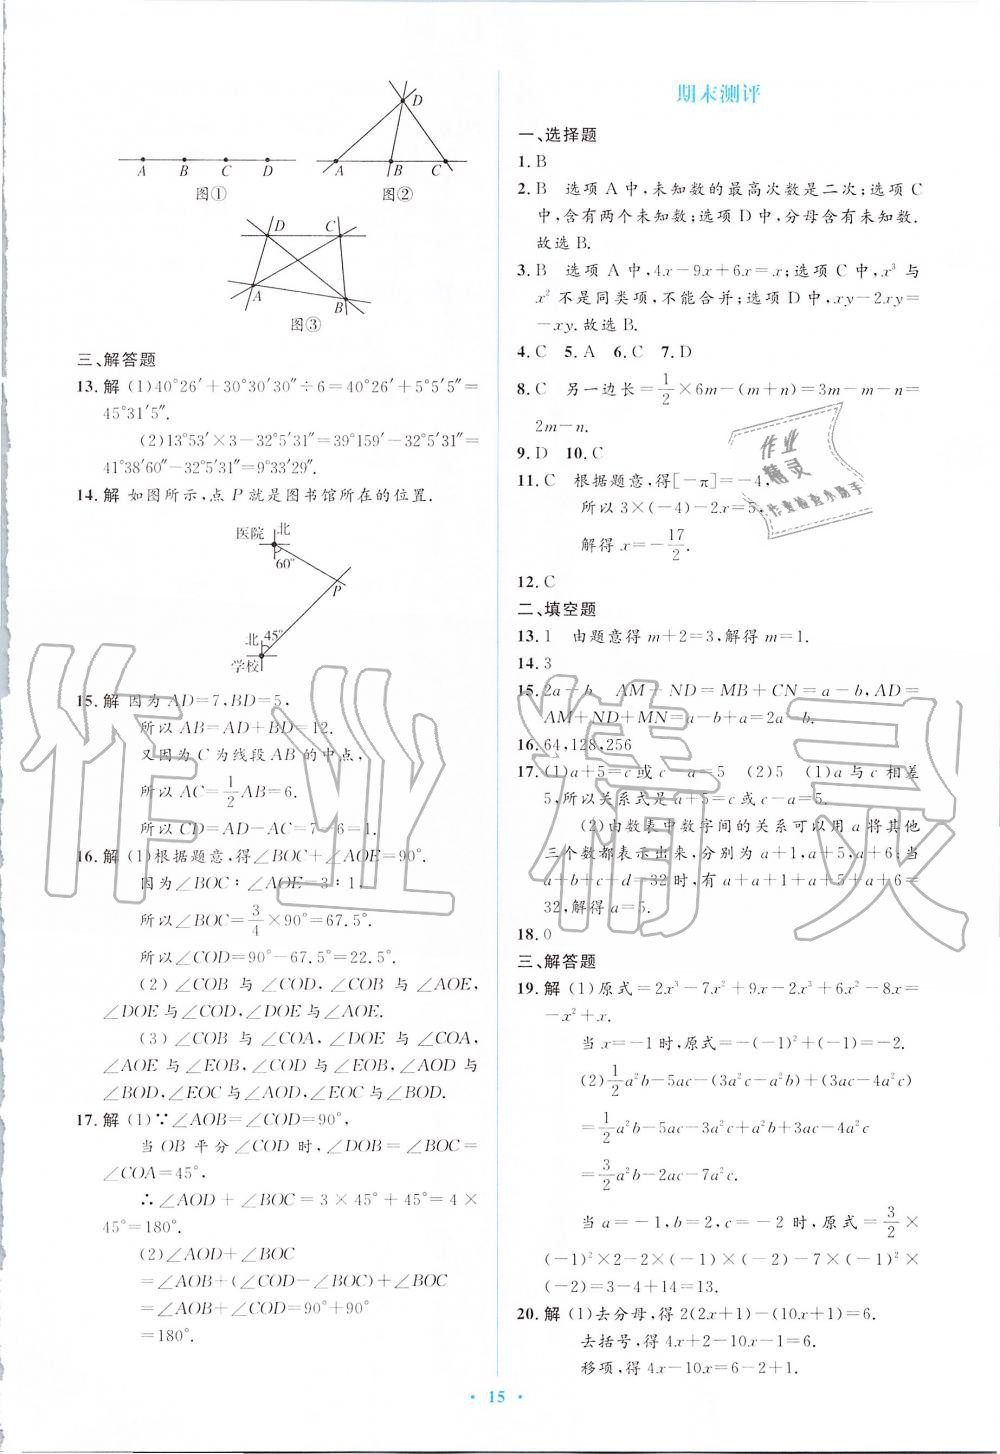 A B C D
图①
D
A B C
图②
D C
A B
图③
三、解答题
13.解 (1)40°26′+30°30′30″÷6=40°26′+5°5′5″=
45°31′5″.
(2)13°53′×3-32°5′31″=39°159′-32°5′31″=
41°38′60″-32°5′31″=9°33′29″.
14.解 如图所示,点P就是图书馆所在的位置.
医院 北
60°
P
北 45°
学校
15.解 因为AD=7,BD=5,
所以AB=AD+BD=12.
又因为C为线段AB的中点,
所以AC=1/2AB=6.
所以CD=AD-AC=7-6=1.
16.解 (1)根据题意,得∠BOC+∠AOE=90°.
因为∠BOC∶∠AOE=3∶1,
所以∠BOC=3/4×90°=67.5°.
所以∠COD=90°-67.5°=22.5°.
(2)∠COB与∠COD,∠COB与∠AOE,
∠DOE与∠COD,∠DOE与∠AOE.
(3)∠COB与∠COA,∠DOE与∠COA,
∠AOE与∠EOB,∠COD与∠EOB,∠AOD与
∠BOD,∠EOC与∠AOD,∠EOC与∠BOD.
17.解 (1)∵∠AOB=∠COD=90°,
当OB平分∠COD时,∠DOB=∠BOC=
∠COA=45°,
∴∠AOD+∠BOC=3×45°+45°=4×
45°=180°.
(2)∠AOD+∠BOC
=∠AOB+(∠COD-∠BOC)+∠BOC
=∠AOB+∠COD=90°+90°
=180°.
期末测评
一、选择题
1.B
2.B 选项A中,未知数的最高次数是二次;选项C
中,含有两个未知数;选项D中,分母含有未知数.
故选B.
3.B 选项A中,4x-9x+6x=x;选项C中,x³与
x²不是同类项,不能合并;选项D中,xy-2xy=
-xy.故选B.
4.C 5.A 6.C 7.D
8.C 另一边长=1/2×6m-(m+n)=3m-m-n=
2m-n.
9.D 10.C
11.C 根据题意,得[-π]=-4,
所以3×(-4)-2x=5,
解得x=-17/2.
12.C
二、填空题
13.1 由题意得m+2=3,解得m=1.
14.3
15.2a-b AM+ND=MB+CN=a-b,AD=
AM+ND+MN=a-b+a=2a-b.
16.64,128,256
17.(1)a+5=c或c-a=5 (2)5 (1)a与c相差
5,所以关系式是a+5=c或c-a=5.
(2)由数表中数字间的关系可以用a将其他
三个数都表示出来,分别为a+1,a+5,a+6;当
a+b+c+d=32时,有a+a+1+a+5+a+6=
32,解得a=5.
18.0
三、解答题
19.解 (1)原式=2x³-7x²+9x-2x³+6x²-8x=
-x²+x.
当x=-1时,原式=-(-1)²+(-1)=-2.
(2)1/2a²b-5ac-(3a²c-a²b)+(3ac-4a²c)
=1/2a²b-5ac-3a²c+a²b+3ac-4a²c
=3/2a²b-2ac-7a²c.
当a=-1,b=2,c=-2时,原式=3/2×
(-1)²×2-2×(-1)×(-2)-7×(-1)²×
(-2)=3-4+14=13.
20.解 (1)去分母,得2(2x+1)-(10x+1)=6.
去括号,得4x+2-10x-1=6.
移项,得4x-10x=6-2+1.
· 15 ·
作业精灵
作业
精灵
作业检查小助手